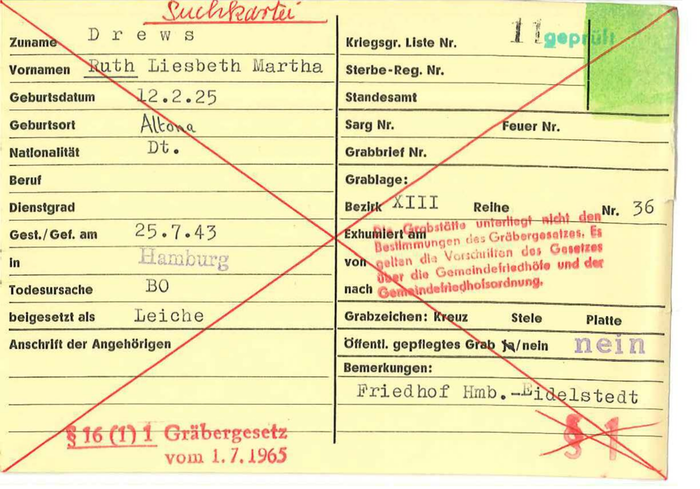 Suchkartei
Zuname Drews
Vornamen Ruth Liesbeth Martha
Geburtsdatum 12.2.25
Geburtsort Altona
Nationalität Dt.
Beruf
Dienstgrad
Gest./Gef. am 25.7.43
in Hamburg
Todesursache BO
beigesetzt als Leiche
Anschrift der Angehörigen
§ 16 (1) 1 Gräbergesetz
vom 1.7.1965
Kriegsgr. Liste Nr. 11 geprüft
Sterbe-Reg. Nr.
Standesamt
Sarg Nr. Feuer Nr.
Grabbrief Nr.
Grablage:
Bezirk XIII Reihe Nr. 36
Exhumiert am
von
nach
Die Grabstätte unterliegt nicht den
Bestimmungen des Gräbergesetzes. Es
gelten die Vorschriften des Gesetzes
über die Gemeindefriedhöfe und der
Gemeindefriedhofsordnung.
Grabzeichen: Kreuz Stele Platte
Öffentl. gepflegtes Grab ja/nein nein
Bemerkungen:
Friedhof Hmb.-Eidelstedt
§ 1